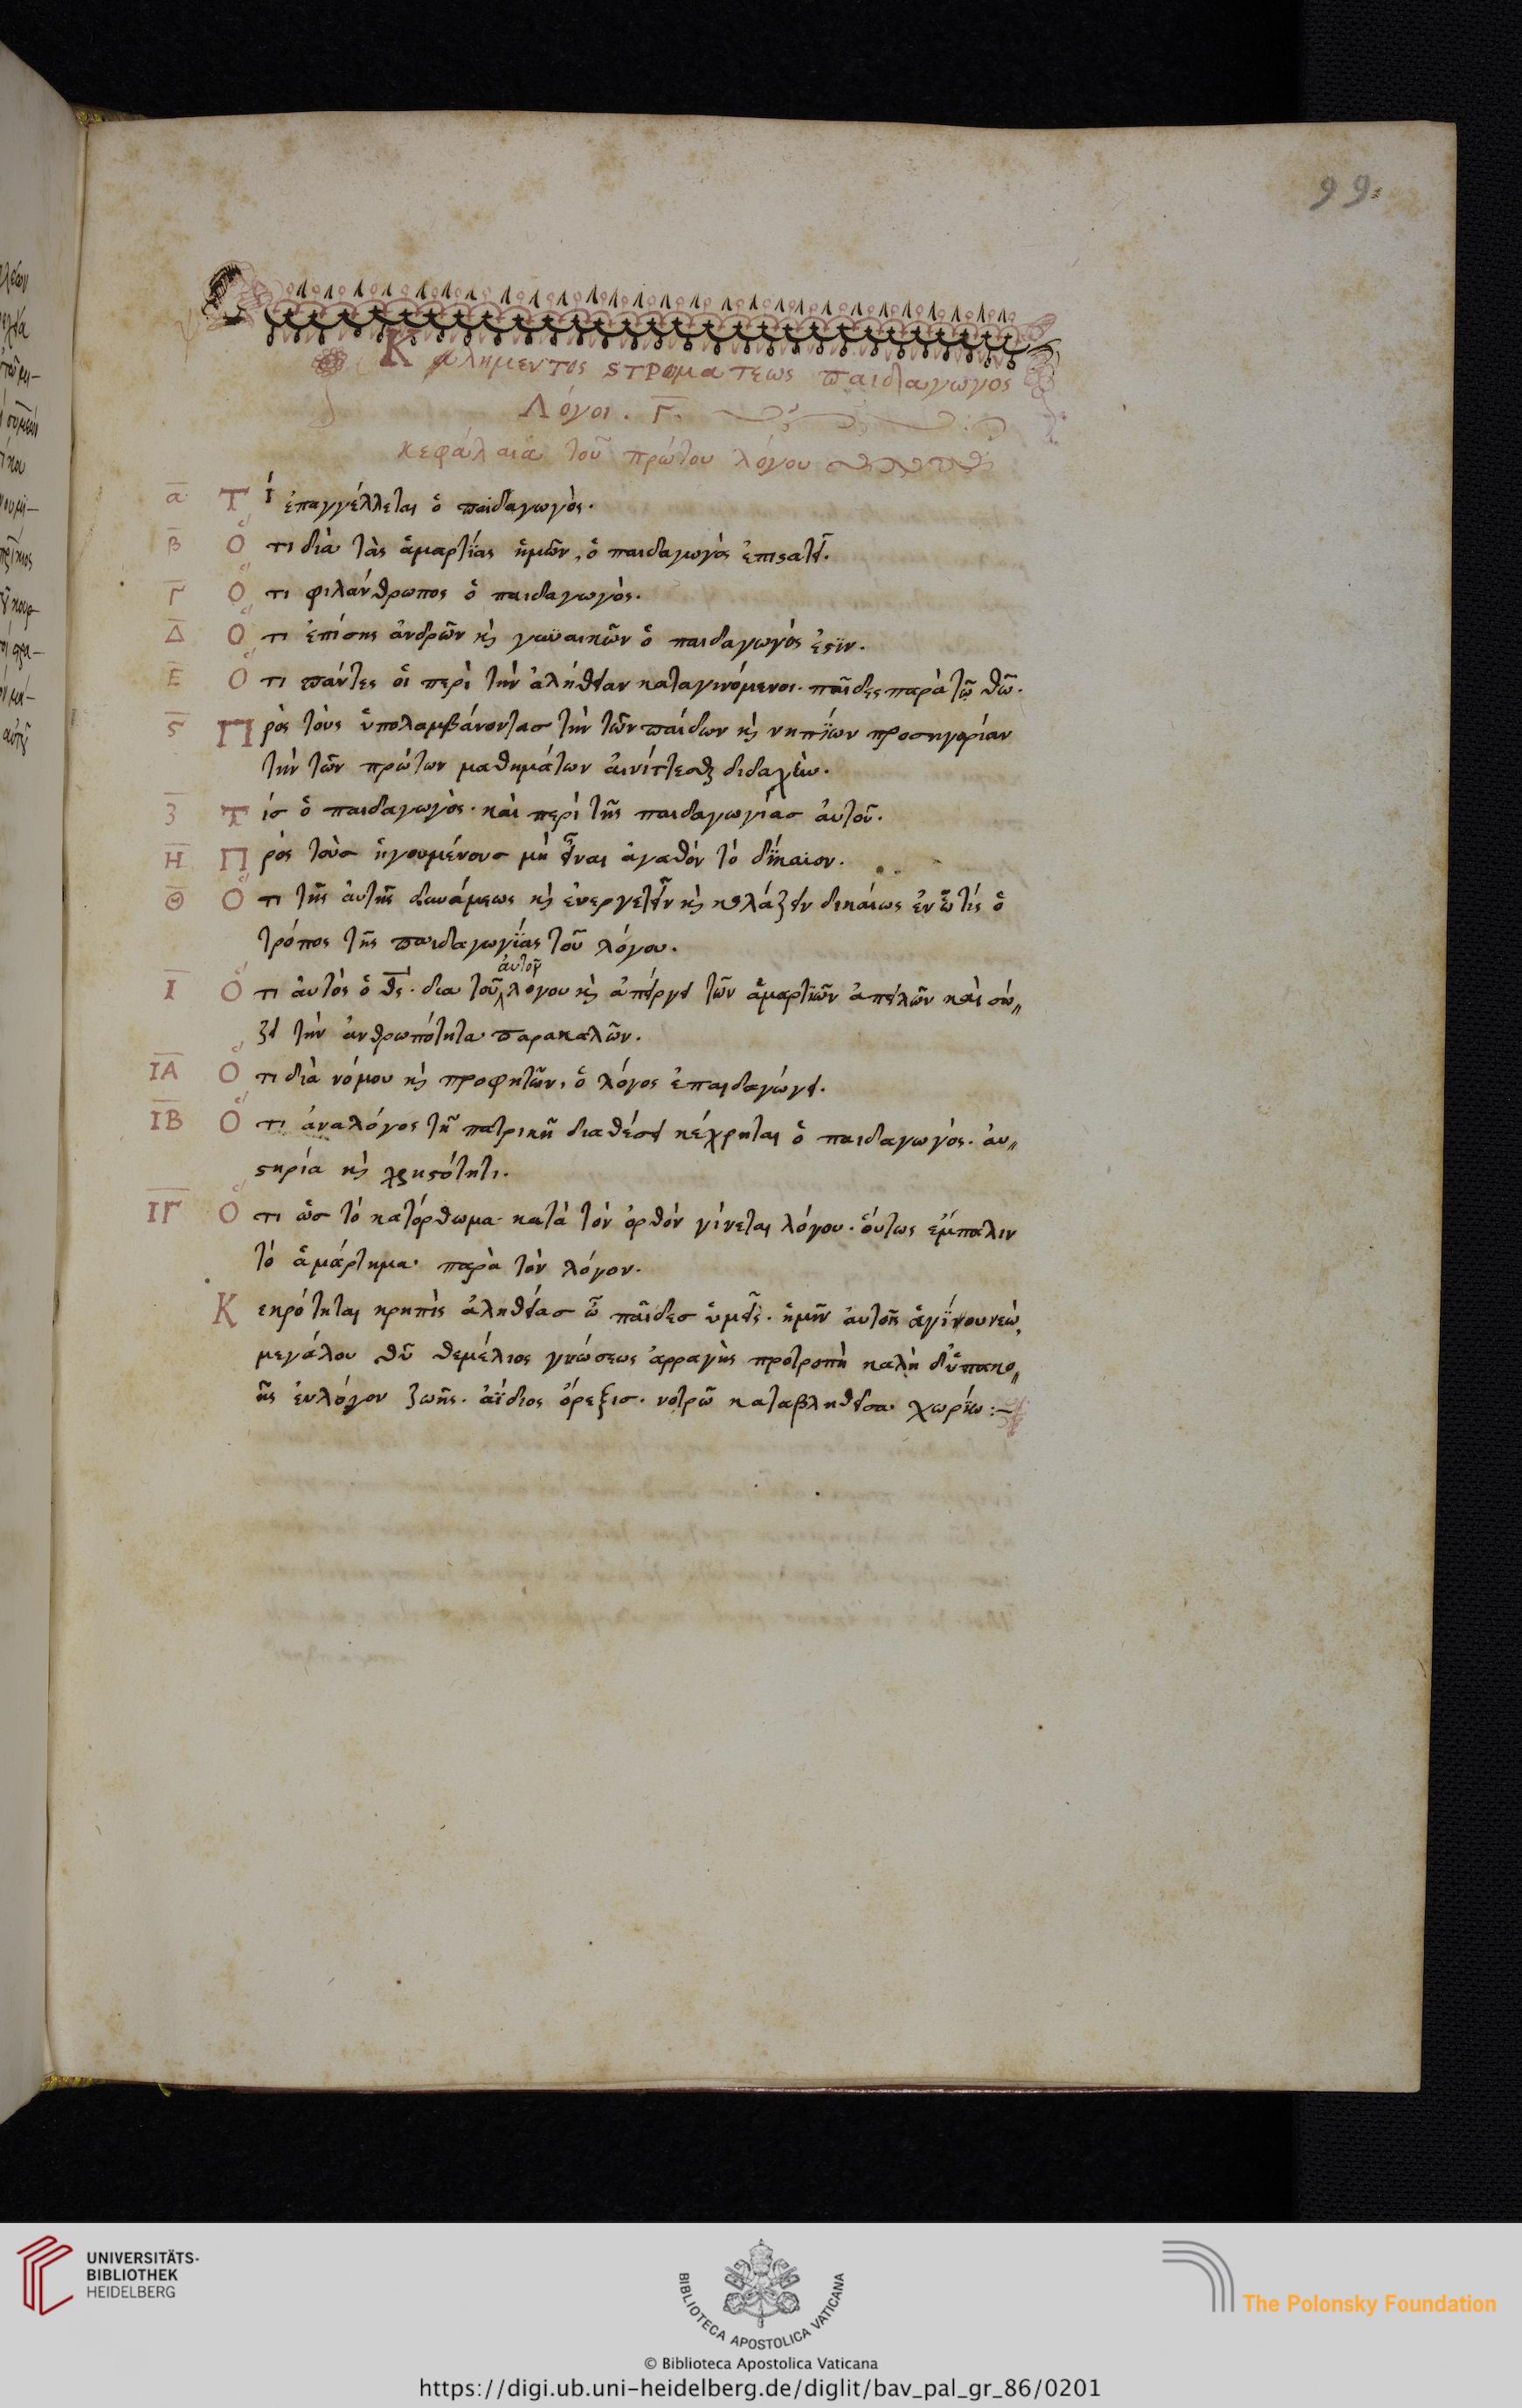 99
Κλημεντος ϛτρωματεως παιδαγωγος
Λόγοι. Γ.
κεφάλαια τοῦ πρώτου λόγου
α Τί ἐπαγγέλλεται ὁ παιδαγωγὸς.
β Ὅτι διὰ τὰς ἁμαρτίας ἡμῶν, ὁ παιδαγωγὸς ἐπιϛατεῖ.
Γ Ὅτι φιλάνθρωπος ὁ παιδαγωγὸς.
Δ Ὅτι ἐπίσης ἀνδρῶν κὶ γυναικῶν ὁ παιδαγωγὸς ἐϛὶν.
Ε Ὅτι πάντες οἱ περὶ τὴν ἀλήθειαν καταγινόμενοι. παῖδες παρὰ τῷ θῶ.
ϛ Πρὸς τοὺς ὑπολαμβάνοντασ τὴν τῶν παίδων κὶ νηπίων προσηγορίαν
τὴν τῶν πρώτων μαθημάτων αἰνίττεσθαι διδαχὴν.
Ζ Τίσ ὁ παιδαγωγὸς. καὶ περὶ τῆς παιδαγωγίασ αὐτοῦ.
Η Πρὸς τοὺσ ἡγουμένουσ μὴ εἶναι ἀγαθὸν τὸ δίκαιον.
Θ Ὅτι τῆς αὐτῆς δυνάμεως κὶ εὐεργετεῖν κὶ κολάζειν δικαίως ἐν ὧ τίς ὁ
τρόπος τῆς παιδαγωγίας τοῦ λόγου.
αὐτοῦ
Ι Ὅτι αὐτὸς ὁ θς. δια τοῦ λογου κὶ ἀπείργει τῶν ἁμαρτιῶν ἀπειλῶν καὶ σώ〃
ζει τὴν ἀνθρωπότητα παρακαλῶν.
ΙΑ Ὅτι διὰ νόμου κὶ προφητῶν, ὁ λόγος ἐπαιδαγώγει.
ΙΒ Ὅτι ἀναλόγος τῇ πατρικῇ διαθέσει κέχρηται ὁ παιδαγωγὸς. αυ〃
ϛηρία κὶ χρηϛότητι.
ΙΓ Ὅτι ὡσ τὸ κατόρθωμα κατὰ τὸν ὀρθὸν γίνεται λόγου. οὕτως ἐμπαλιν
τὸ ἁμάρτημα παρὰ τὸν λόγον.
Κεκρότηται κρηπὶς ἀληθείασ ὦ παῖδεσ ὑμεῖς. ἡμῖν αὐτοῖς ἁγίνου νεὼ
μεγάλου θῦ θεμέλιος γνώσεως ἀρραγὴς προτροπὴ καλὴ δι' ὑπακο〃
ῆς εὐλόγον ζωῆς. ἀΐδιος ὄρεξισ. νοερῶ καταβληθεῖσα χωρίω :—
UNIVERSITÄTS-
BIBLIOTHEK
HEIDELBERG
BIBLIOTECA APOSTOLICA VATICANA
The Polonsky Foundation
© Biblioteca Apostolica Vaticana
https://digi.ub.uni-heidelberg.de/diglit/bav_pal_gr_86/0201